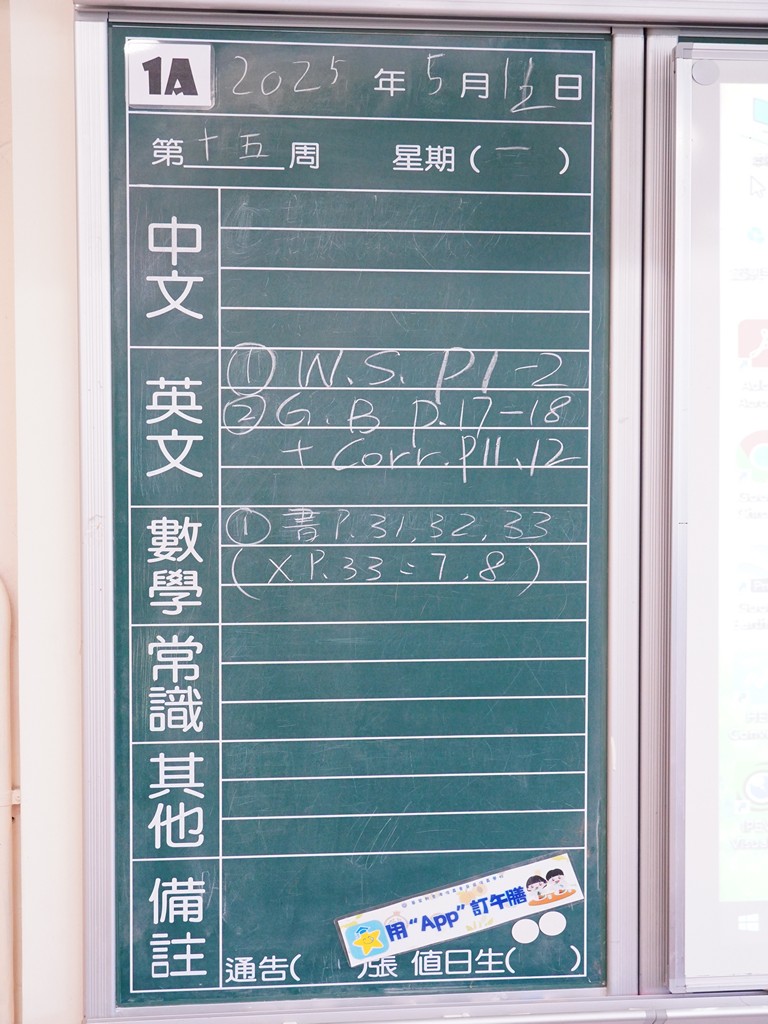 1A 2025 年 5 月 12 日
第 十五 周 星期 ( 一 )
中文
英文
① W.S. P1-2
② G.B P.17-18
+ Corr. P11、12
數學
① 書 P.31, 32, 33
(X P.33 : 7, 8)
常識
其他
備註
用“App”訂午膳
通告( )張 值日生( )